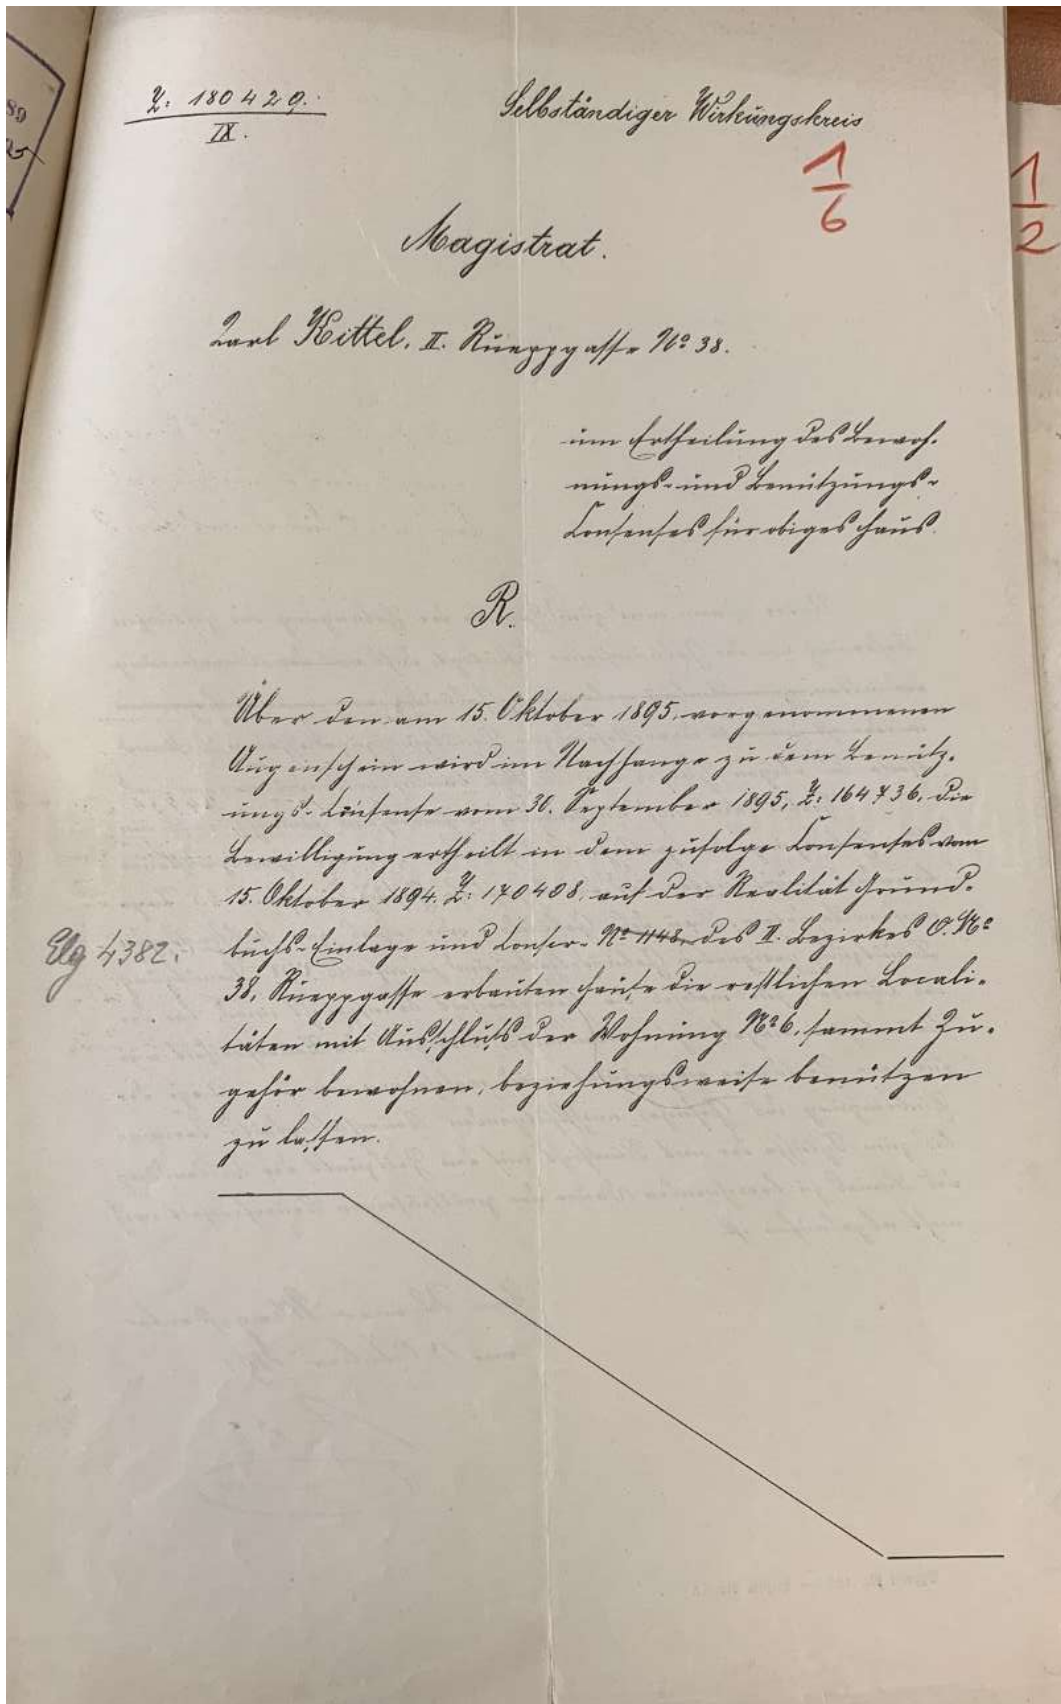 89
Z: 180429.
IX.
Selbständiger Wirkungskreis
1/6
1/2
Magistrat.
Karl Kittel, II. Rueppgasse No 38.
um Ertheilung des Bewoh-
nungs- und Benützungs-
Consenses für obiges Haus.
R.
Über den am 15. Oktober 1895, vorgenommenen
Augenschein wird im Nachhange zu dem Benütz-
ungs-Consense vom 30. September 1895, Z: 164736, die
Bewilligung ertheilt in dem zufolge Consenses vom
15. Oktober 1894. Z: 170408, auf der Realität Grund-
Elg 4382.
buchs-Einlage und Conscr. No 1148 des II. Bezirkes O. No
38, Rueppgasse erbauten Hause die restlichen Locali-
täten mit Ausschluß der Wohnung No 6, sammt Zu-
gehör bewohnen, beziehungsweise benützen
zu lassen.